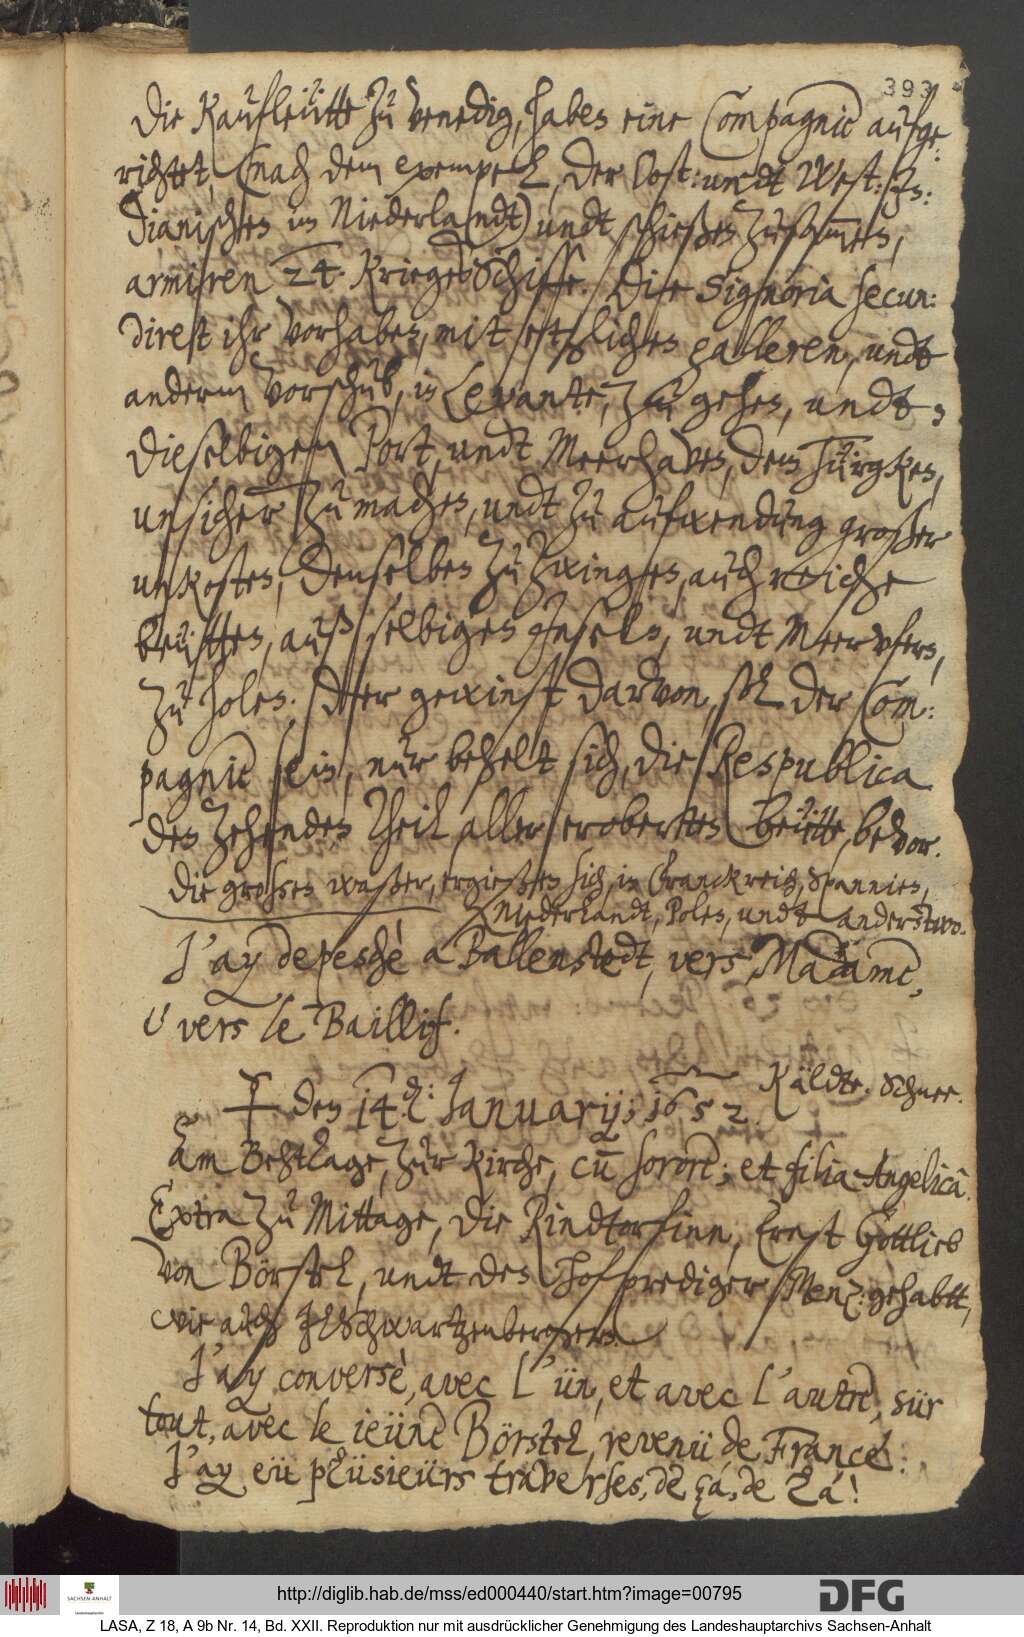 393
Die Kaufleütte zu Venedig, haben eine Compagnie aufge-
richtet, (nach dem exempel, der Ost: undt West: In:
dianischen in Niederlandt) undt schießen zusammen,
armiren 24. KriegesSchiffe. Die Signoria secun:
diret ihr vorhaben, mit etzlichen galleren, undt
anderm vorschub, in Levante, zu gehen, undt,
dieselbigen Port, undt Meerhaven, den Türgken,
unsicher zu machen, undt zu aufwendung großer
unkosten, denselben zu zwingen, auch reiche
beütten, auß selbigen Inseln, undt Meer vfern,
zu holen. Der gewinst darvon, soll der Com:
pagnie sein, nur behelt sich, die Respublica
den Zehenden Theil aller eroberten beütte, bevor.
Die großen waßer, ergießen sich, in Franckreich, Spannien,
Niederlandt, Polen, undt anderstwo.
J'ay depesché a Ballenstedt, vers Madame,
& vers le Baillif.
den 14. d: Januarij; 1652. Käldte. Schnee.
Am Behttage, zur kirche, cum sorore; et filia Angelicâ.
Extra zu Mittage, die Rindtorfinn, Ernst Gottlieb
von Börstel, undt den Hofprediger Menz: gehabtt,
wie auch Schwartzenbergern.
J'ay conversè, avec l'ün, et avec l'autre, sür
tout, avec le ieüne Börstel, revenü de France.
J'ay eü plüsieürs traverses, de çá, de lá!
http://diglib.hab.de/mss/ed000440/start.htm?image=00795
SACHSEN-ANHALT
Landeshauptarchiv
DFG
LASA, Z 18, A 9b Nr. 14, Bd. XXII. Reproduktion nur mit ausdrücklicher Genehmigung des Landeshauptarchivs Sachsen-Anhalt